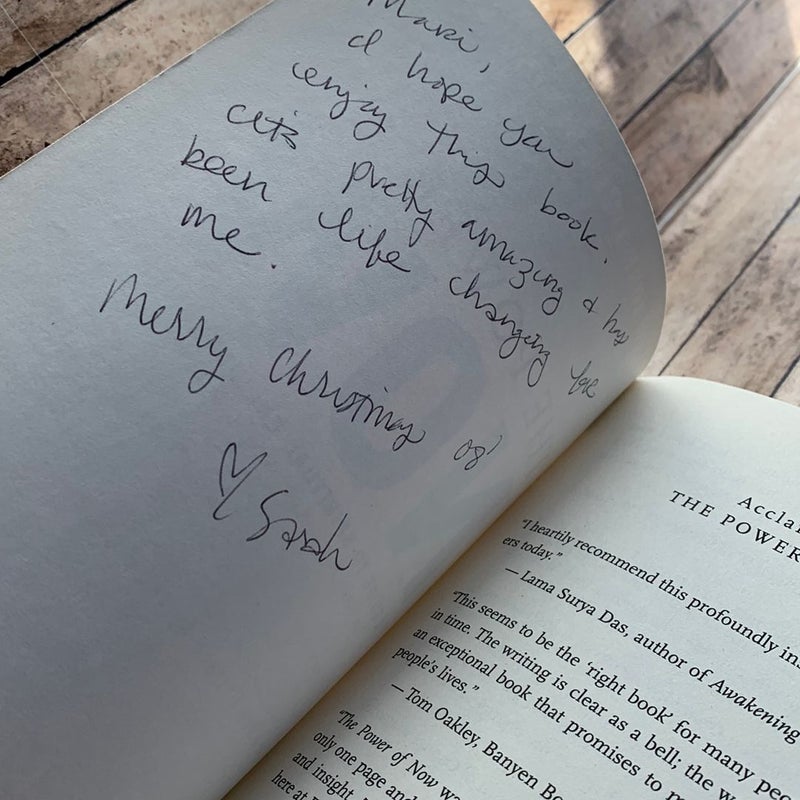 Mari,
I hope you
enjoy this book.
It's pretty amazing & has
been life changing for
me.
Merry Christmas 08'
♡ Sarah
Accla
THE POWER
"I heartily recommend this profoundly ins
ers today."
—Lama Surya Das, author of Awakening
"This seems to be the 'right book' for many peo
in time. The writing is clear as a bell; the w
an exceptional book that promises to m
people's lives."
—Tom Oakley, Banyen Bo
"The Power of Now wa
only one page and
and insight.
here at